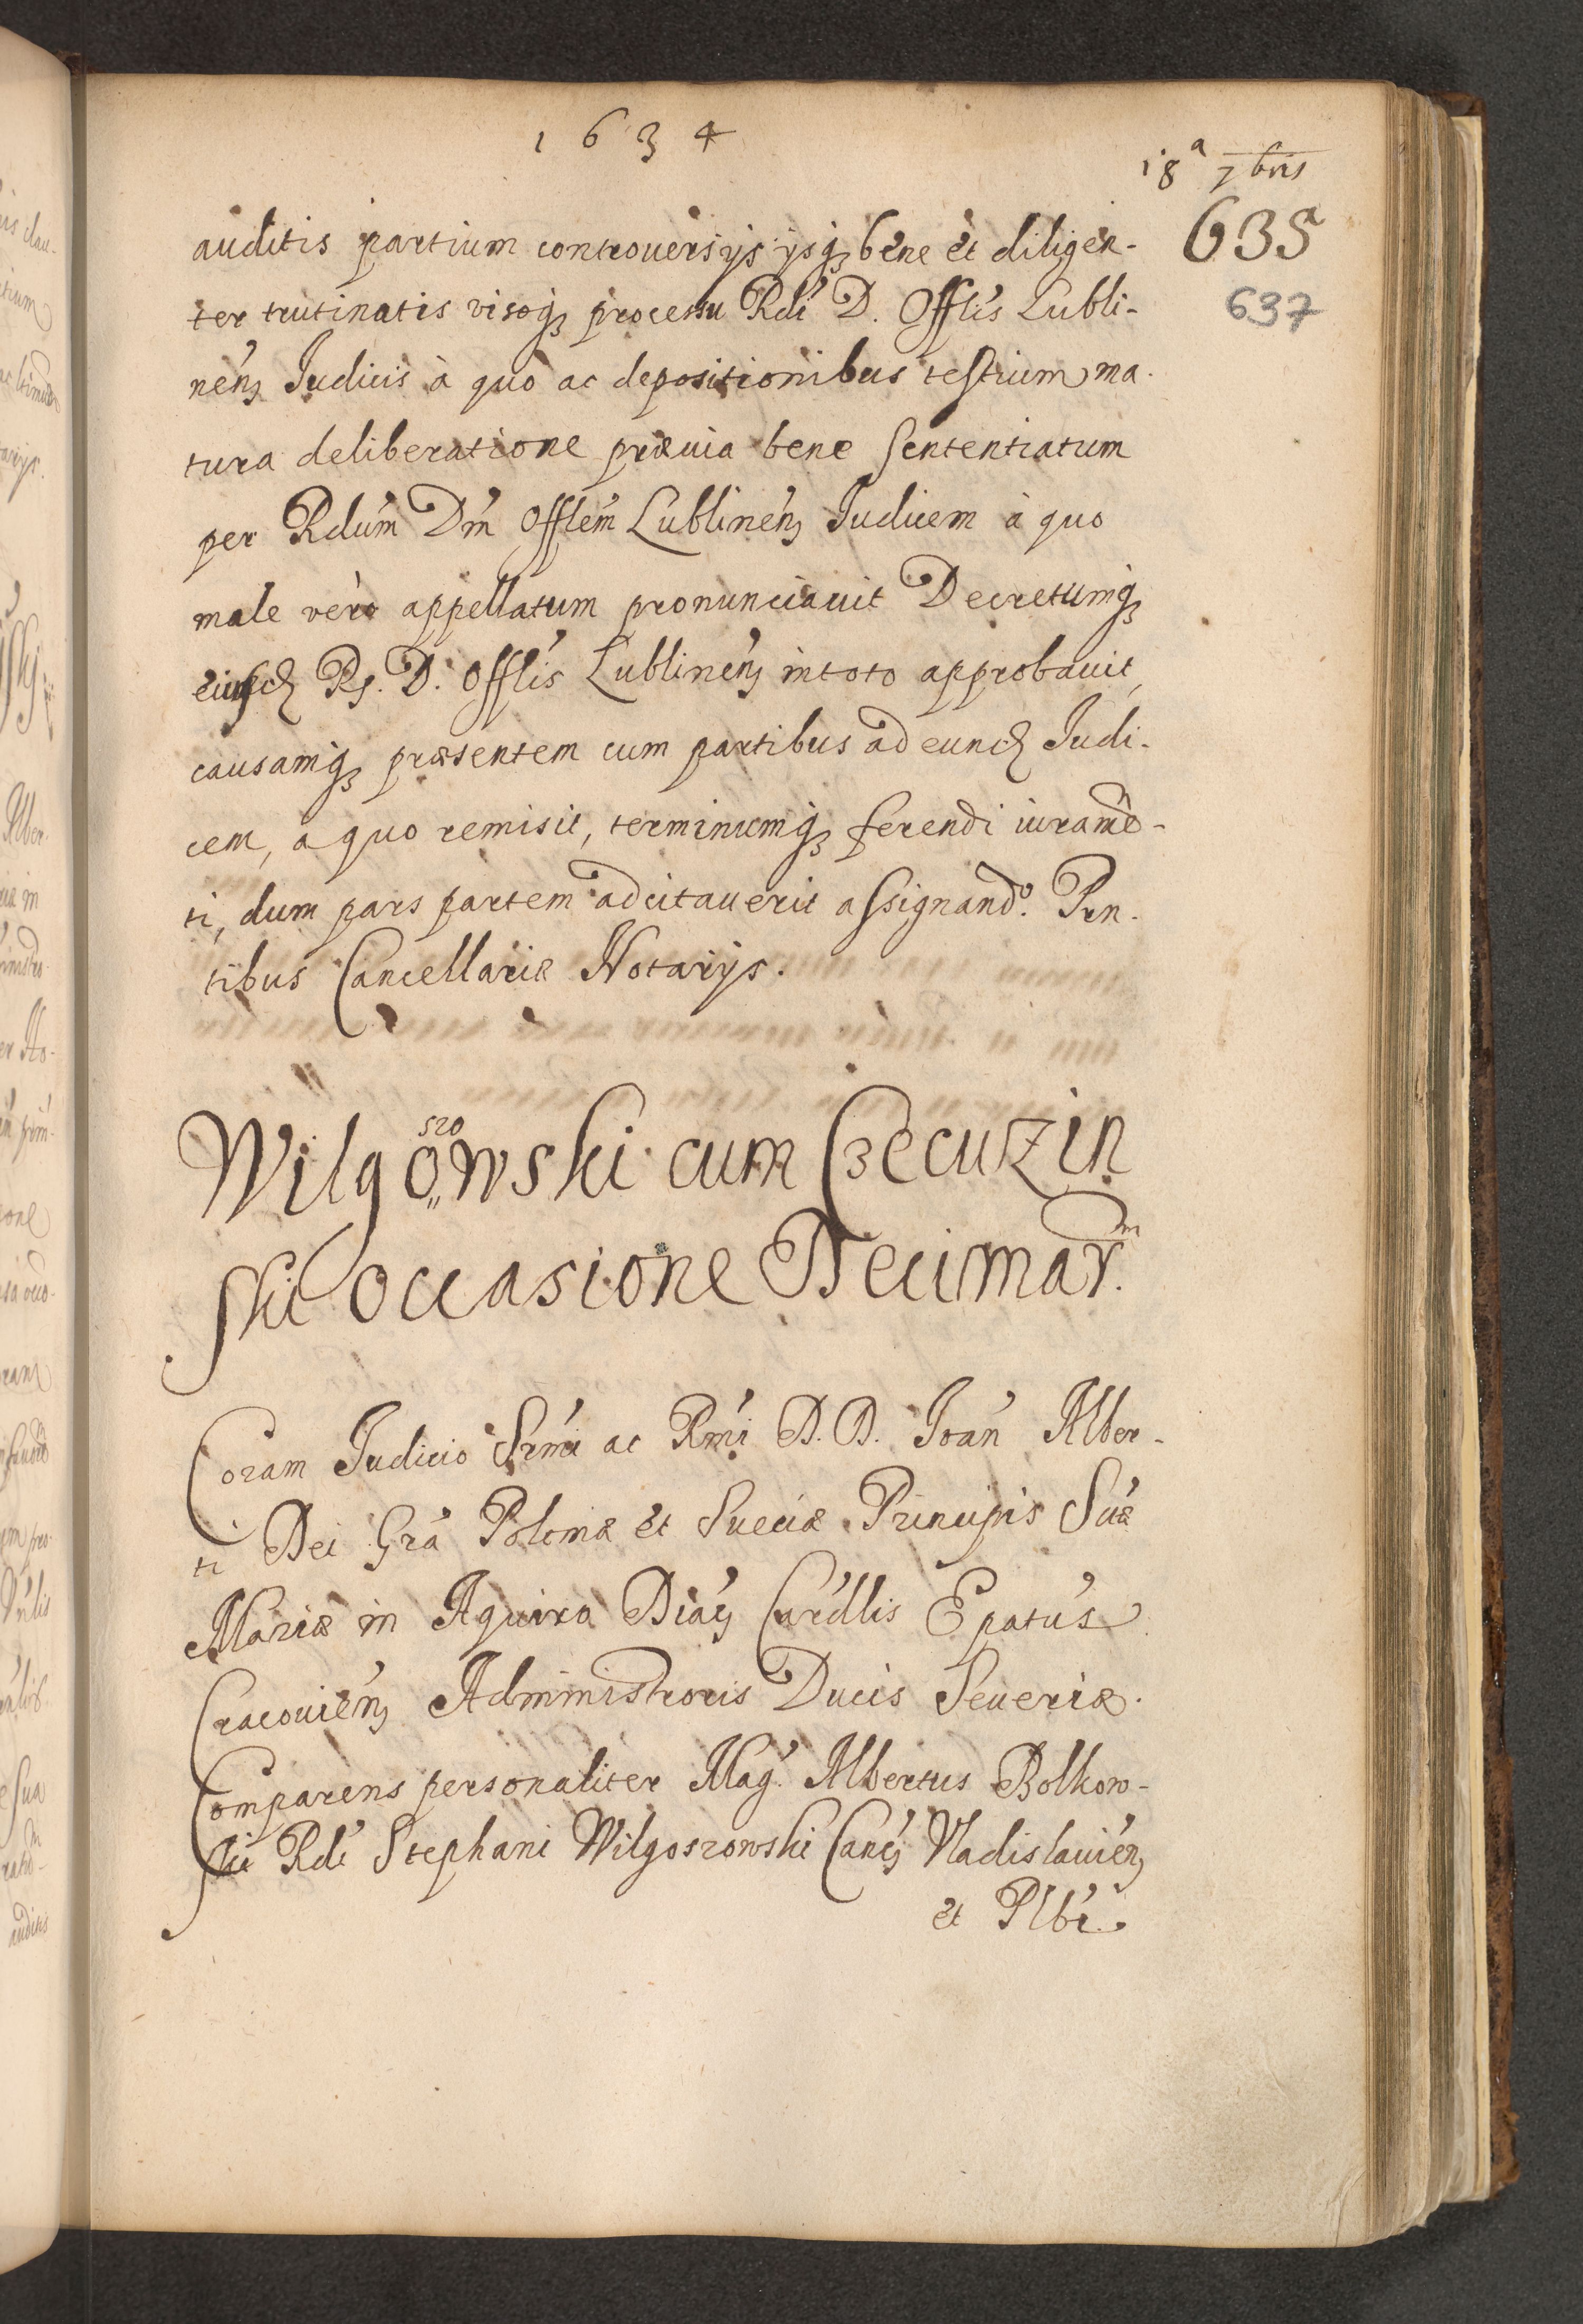 1634
18ª 7bris
635
637
auditis partium controuersijs ijsq₃ bene et diligen-
ter trutinatis visoq₃ processu Rdi D. Offlis Lubli-
nen₃ Iudicis à quo ac depositionibus testium ma-
tura deliberatione præuia bene sententiatum
per Rdum Dm Offlem Lublinen₃ Iudicem à quo
male vero appellatum pronunciauit Decretumq₃
eiusd Rs. D. Offlis Lublinen₃ in toto approbauit,
causamq₃ præsentem cum partibus ad eund Iudi-
cem, a quo remisit, terminumq₃ ferendi iuramē-
ti, dum pars partem adcitauerit assignandº. Prn-
tibus Cancellariæ Notarijs.
Wilgoszowski cum Czecuzin
ski occasione Decimarm.
Coram Iudicio Srmi ac Rmi D.D. Ioan Alber-
ti Dei Gra Poloniæ et Sueciæ Principis Stæ
Mariæ in Aquiro Diac₃ Cardlis Epatus
Cracouien₃ Administroris Ducis Seueriæ.
Comparens personaliter Mag. Albertus Bolkow-
ski Rdi Stephani Wilgoszowski Can₃ Vladislauien₃
et Plbi.